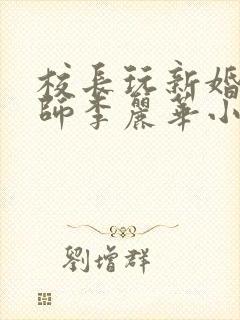 校長玩新婚
師李麗華小
劉增群